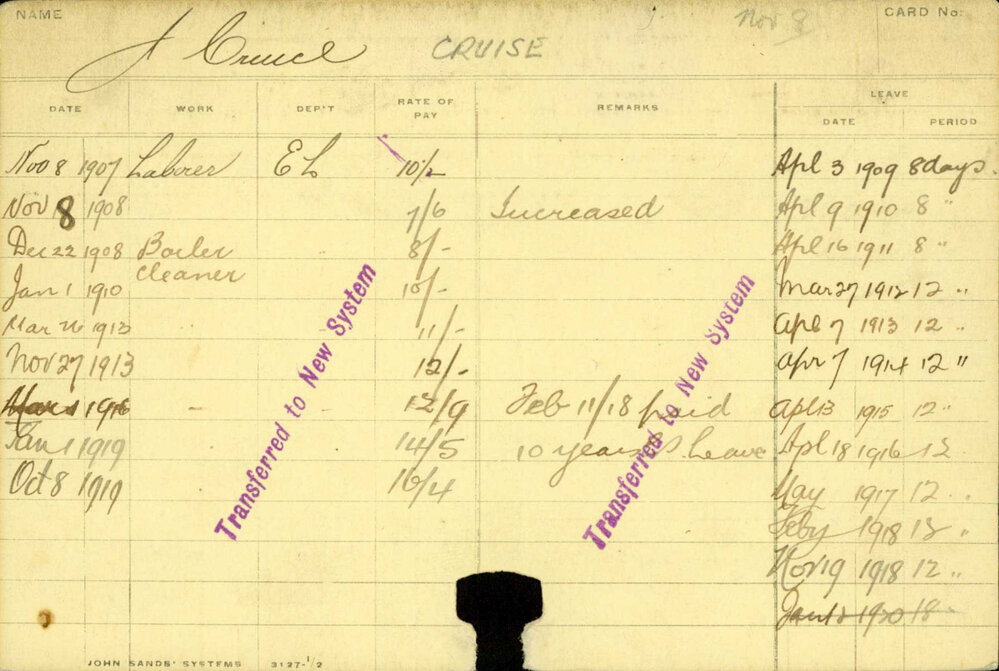 NAME Nov 8 CARD No:
J Cruice CRUISE
DATE WORK DEP'T RATE OF PAY REMARKS LEAVE
DATE PERIOD
Nov 8 1907 Laborer E L Apl 3 1909 8 days.
Nov 8 1908 7/6 Increased Apl 9 1910 8 "
Dec 22 1908 Boiler 8/- Apl 16 1911 8 "
cleaner
Jan 1 1910 10/- Mar 27 1912 12 "
Mar 1913 11/- Apl 7 1913 12 "
Nov 27 1913 12/- Apr 7 1914 12 "
1916 12/9 Feb 11/18 paid Apl 13 1915 12 "
Jan 1 1919 14/5 10 years Leave Apl 18 1916 12
Oct 8 1919 16/4 May 1917 12 "
Feby 1918 12 "
Nov 19 1918 12 "
1920 18
Transferred to New System
Transferred to New System
JOHN SANDS' SYSTEMS 3127-1/2